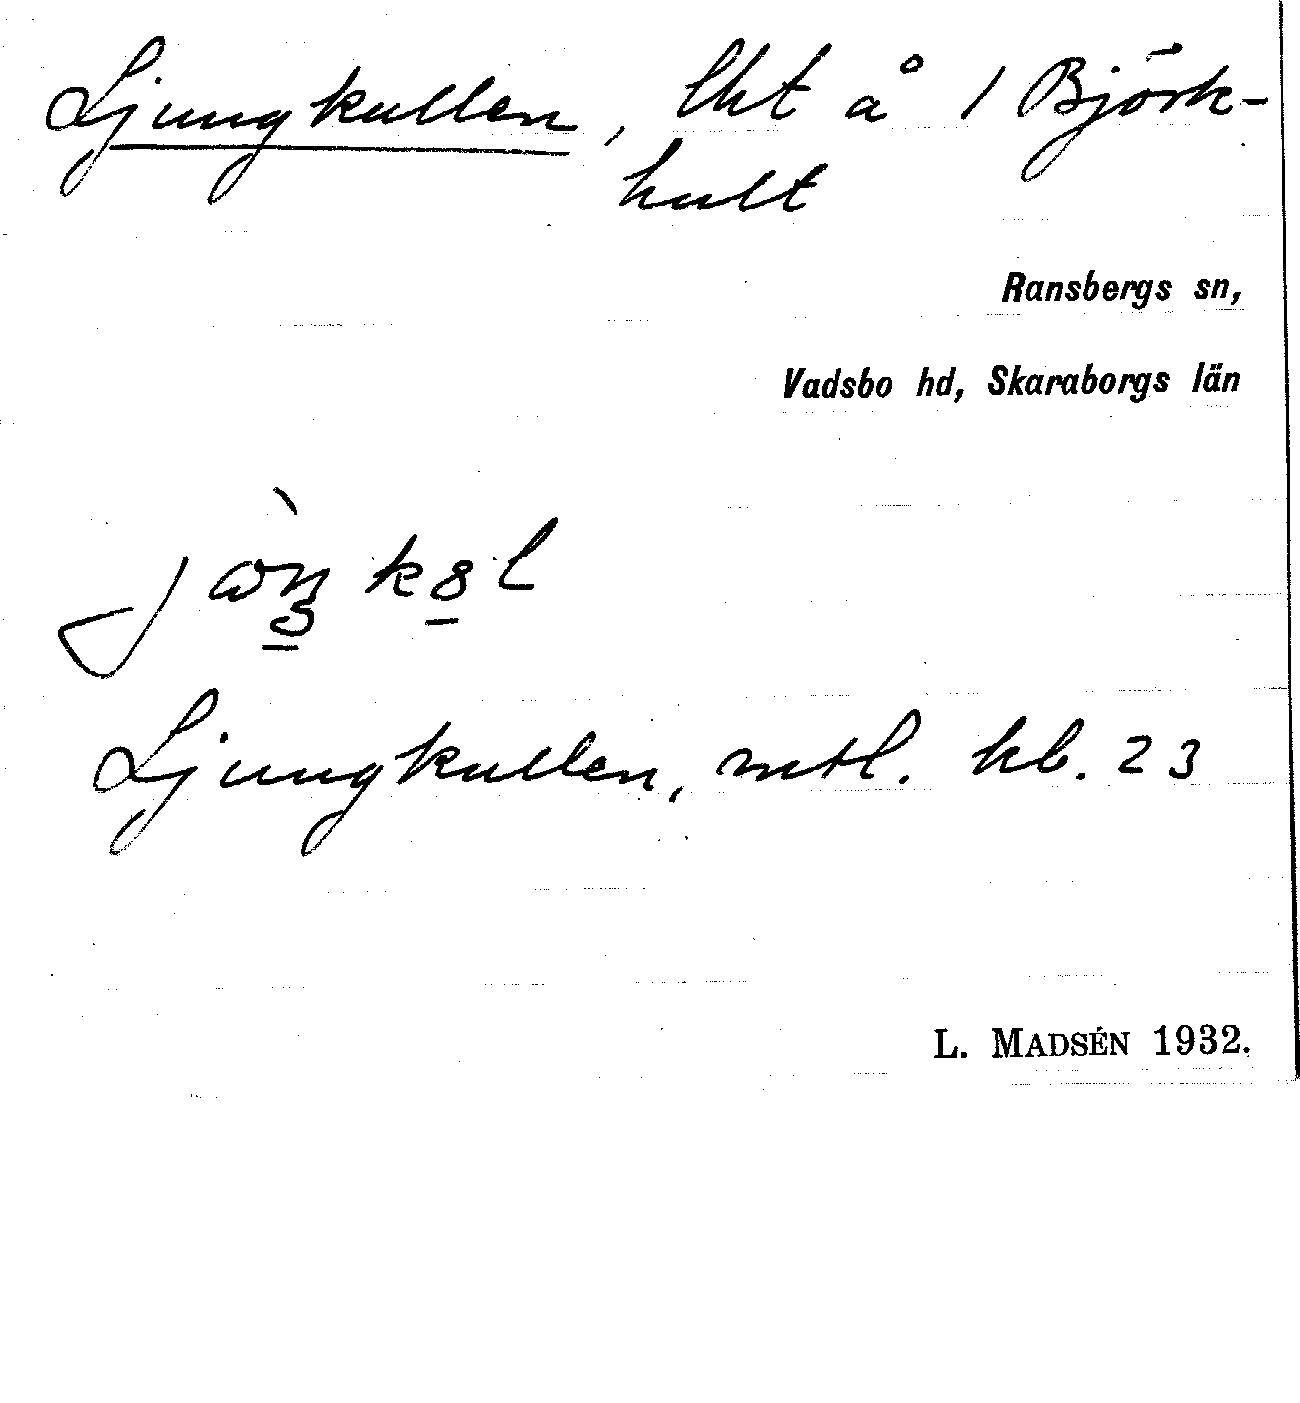 Ljungkullen, lht å 1 Björk-
hult
Ransbergs sn,
Vadsbo hd, Skaraborgs län
Ljungkullen, mtl. hb. 23
L. MADSÉN 1932.